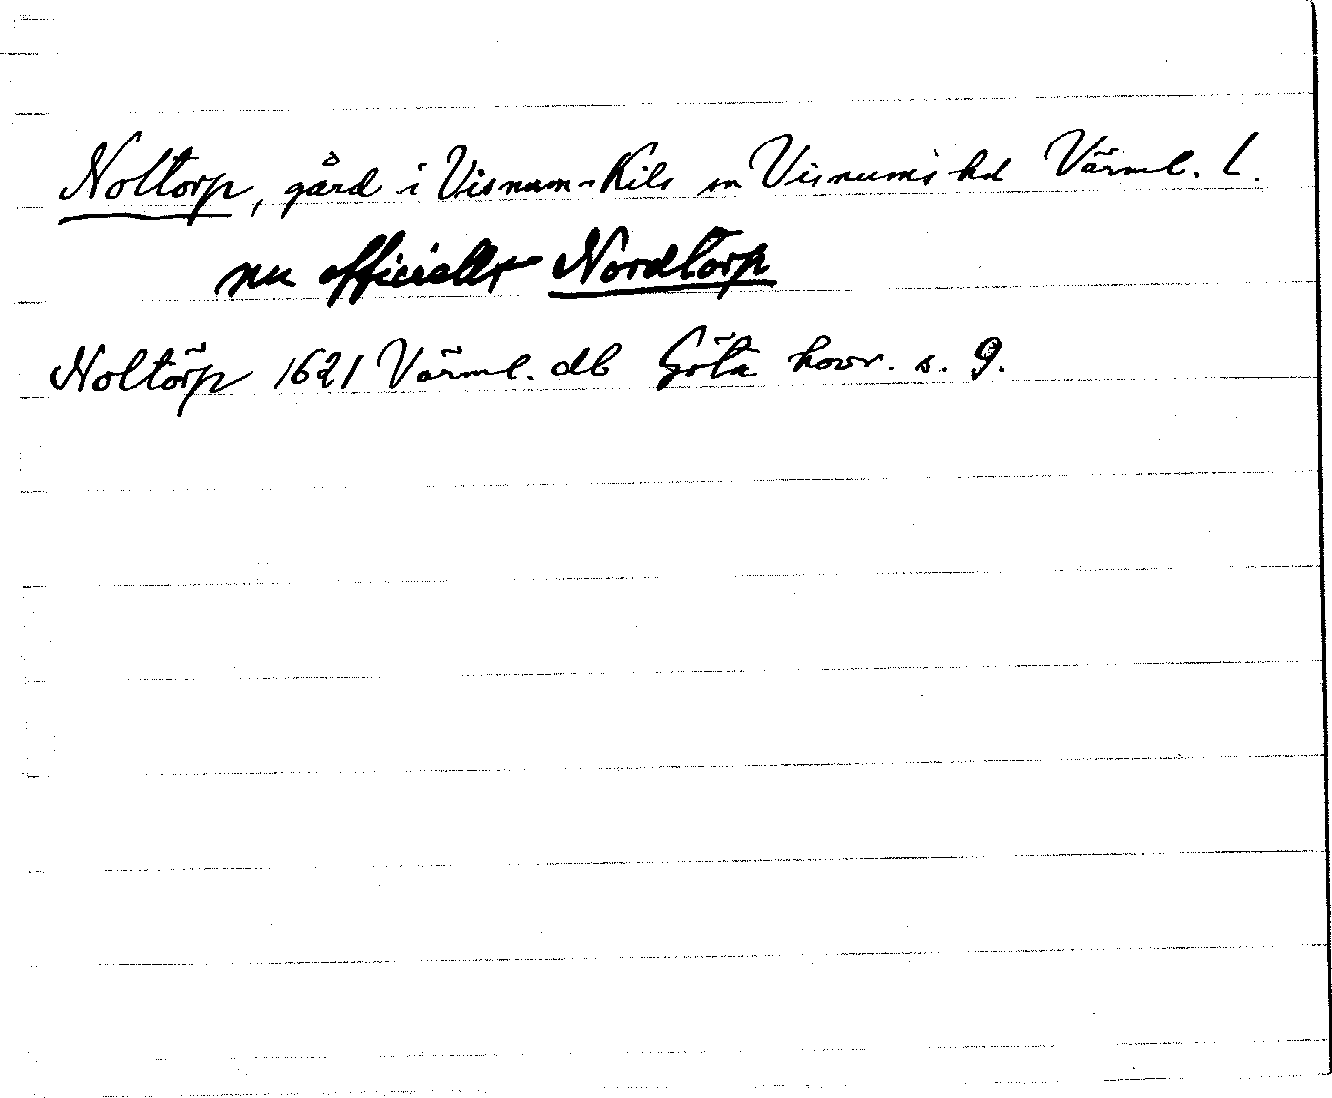 Noltorp, gård i Visnum-Kils sn Visnums hd Värml. L.
nu officiellt Nordtorp
Noltörp 1621 Värml. db Göta hovr. s. 9.